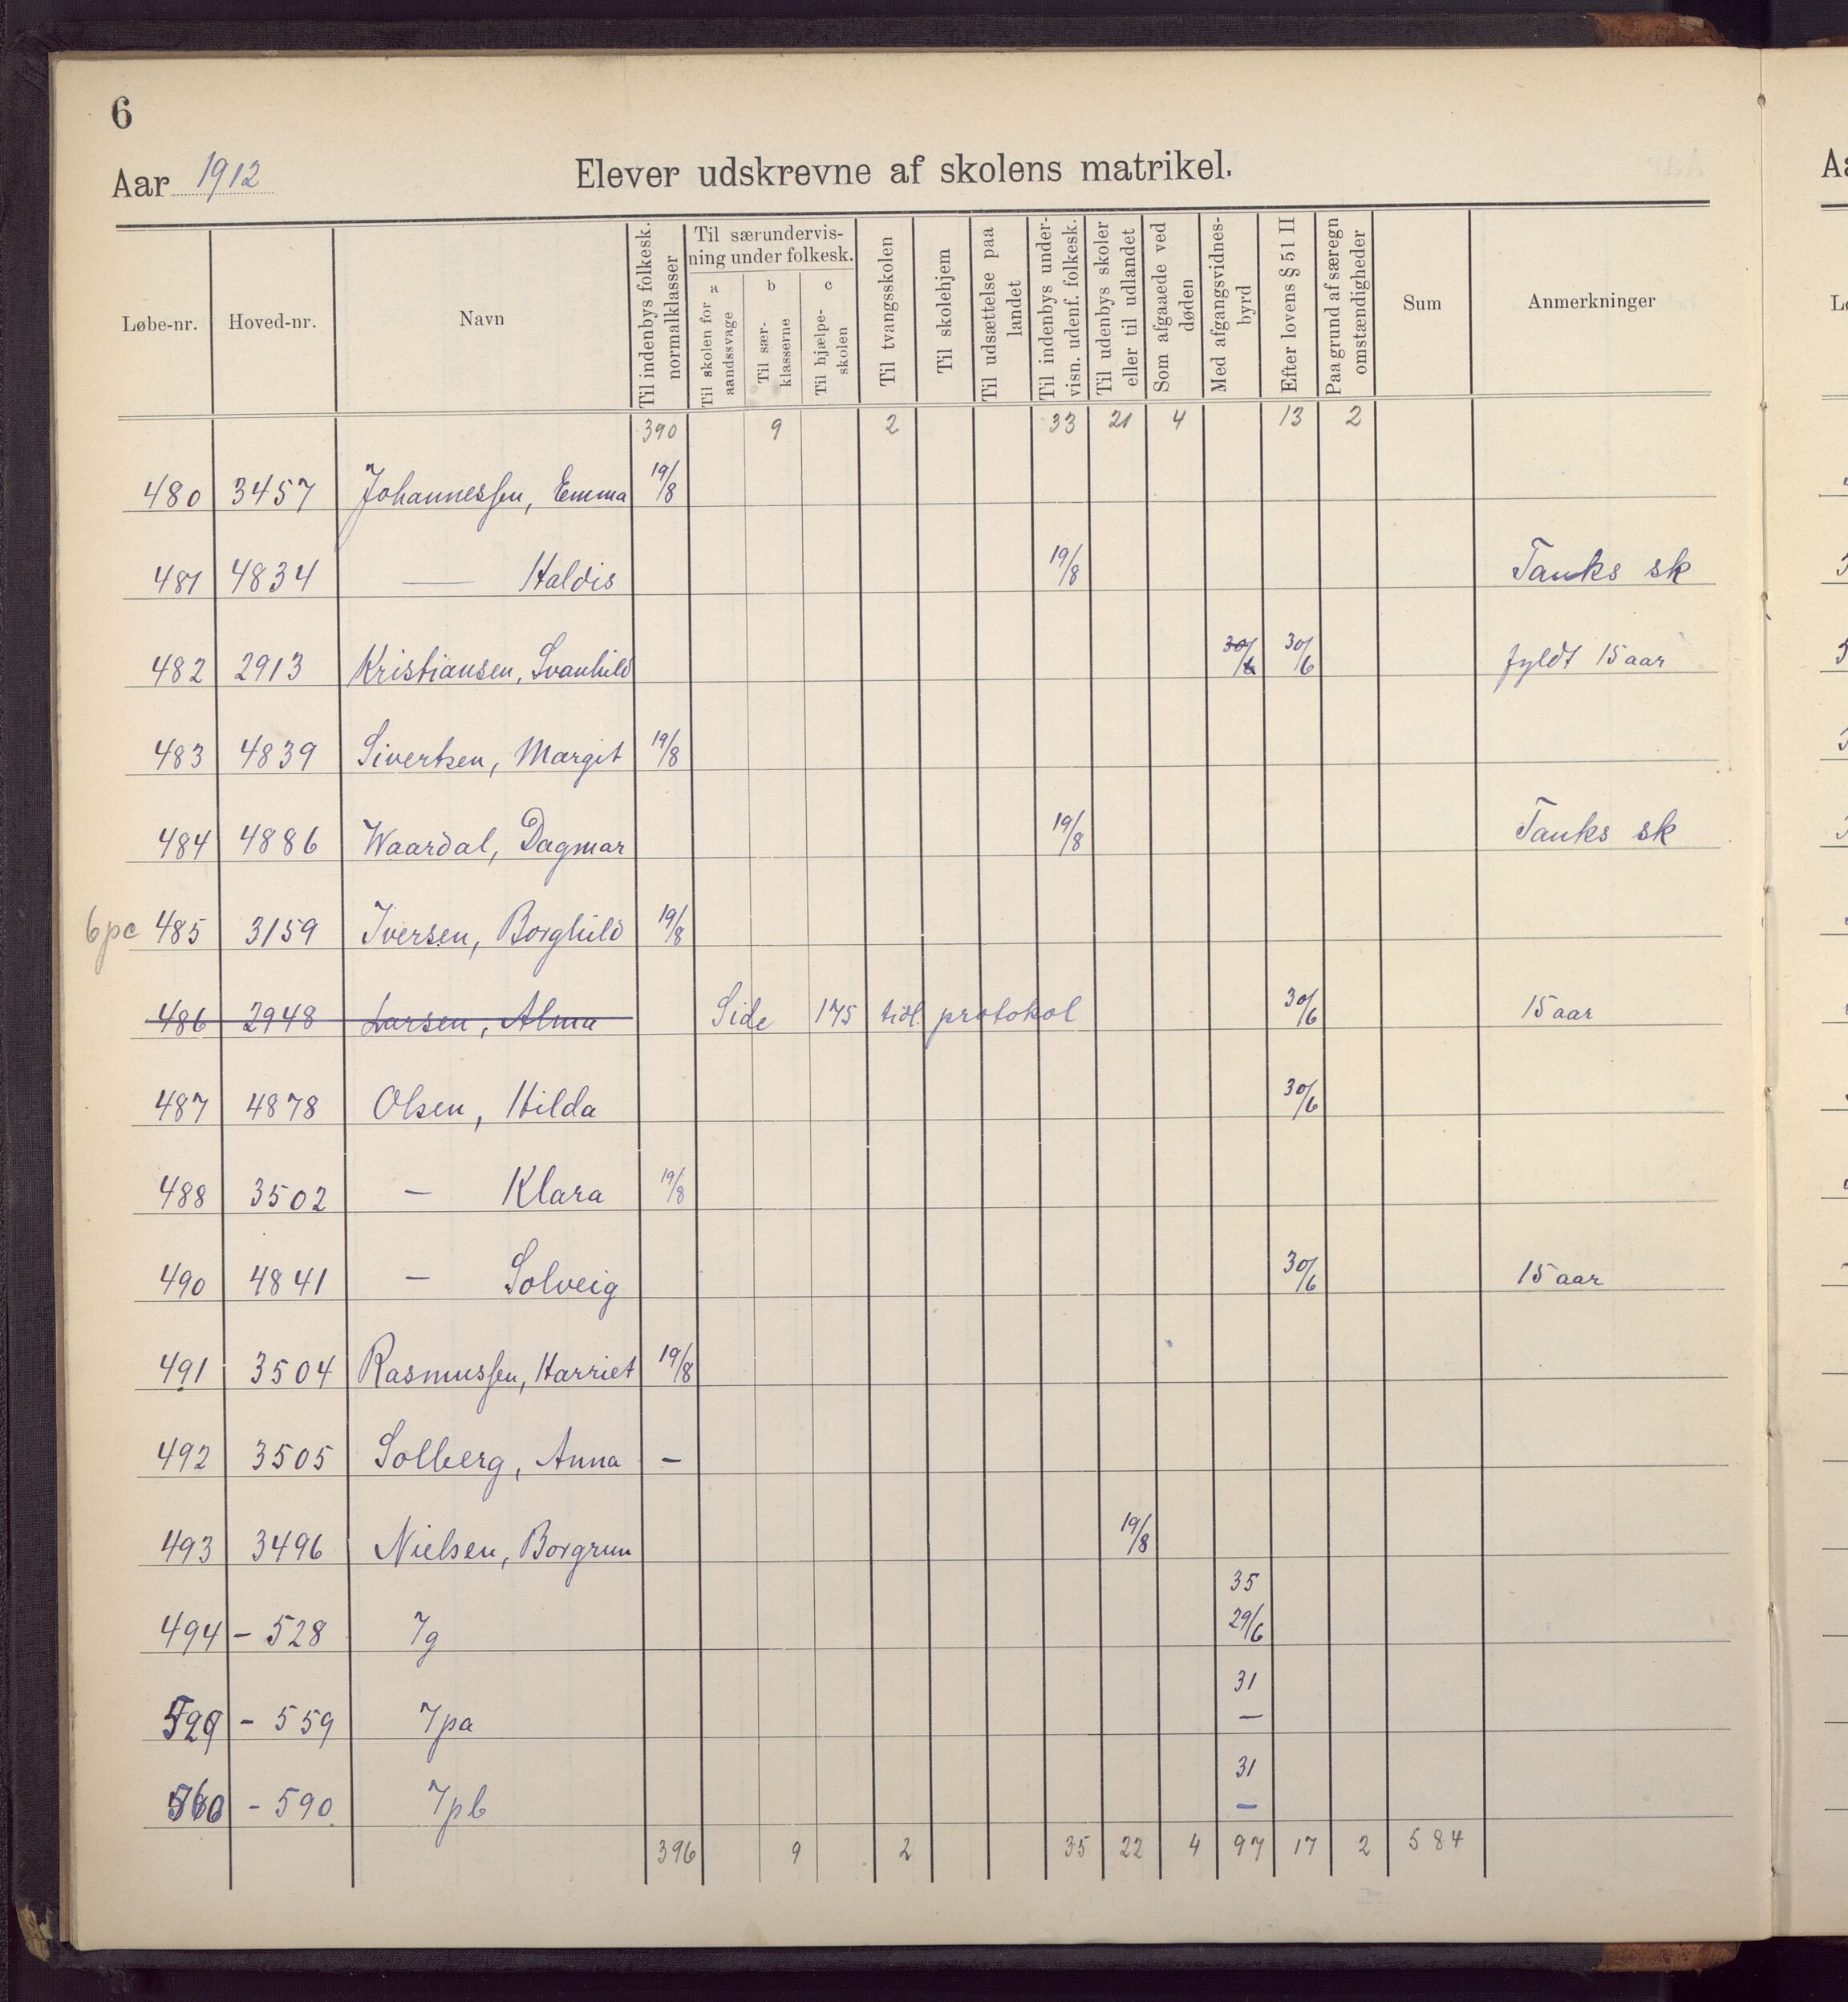 6
Aar 1912 Elever udskrevne af skolens matrikel.
Løbe-nr. Hoved-nr. Navn Til indenbys folkesk. normalklasser Til særundervisning under folkesk. a Til skolen for aandssvage b Til særklasserne c Til hjælpeskolen Til tvangsskolen Til skolehjem Til udsættelse paa landet Til indenbys undervisn. udenf. folkesk. Til udenbys skoler eller til udlandet Som afgaaede ved døden Med afgangsvidnesbyrd Efter lovens § 51 II Paa grund af særegn omstændigheder Sum Anmerkninger
390 9 2 33 21 4 13 2
480 3457 Johannessen, Emma 19/8
481 4834 — Haldis 19/8 Tanks sk
482 2913 Kristiansen, Svanhild 30/6 30/6 fyldt 15 aar
483 4839 Sivertsen, Margit 19/8
484 4886 Waardal, Dagmar 19/8 Tanks sk
6pc 485 3159 Iversen, Borghild 19/8
486 2948 Larsen, Alma Side 175 tidl. protokol 30/6 15 aar
487 4878 Olsen, Hilda 30/6
488 3502 — Klara 19/8
490 4841 — Solveig 30/6 15 aar
491 3504 Rasmussen, Harriet 19/8
492 3505 Solberg, Anna —
493 3496 Nielsen, Borgrun 19/8
494 – 528 7g 35 29/6
529 – 559 7pa 31 —
560 – 590 7pb 31 —
396 9 2 35 22 4 97 17 2 584